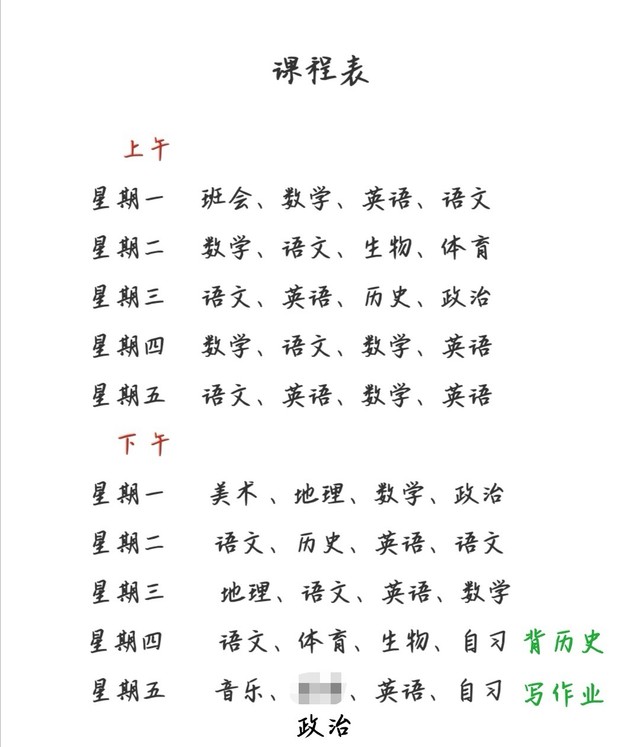 课程表
上午
星期一 班会、数学、英语、语文
星期二 数学、语文、生物、体育
星期三 语文、英语、历史、政治
星期四 数学、语文、数学、英语
星期五 语文、英语、数学、英语
下午
星期一 美术、地理、数学、政治
星期二 语文、历史、英语、语文
星期三 地理、语文、英语、数学
星期四 语文、体育、生物、自习 背历史
星期五 音乐、、英语、自习 写作业
政治